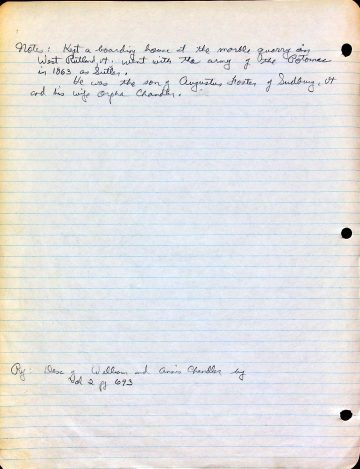 Notes: Kept a boarding house at the marble quarry in
West Rutland, Vt. went with the army of the Potomac
in 1863 as Sutler.
He was the son of Augustus Foster of Sudbury, Vt
and his wife Orpha Chandler.
Ref: Desc of William and Annis Chandler by
Vol 2 pg 693